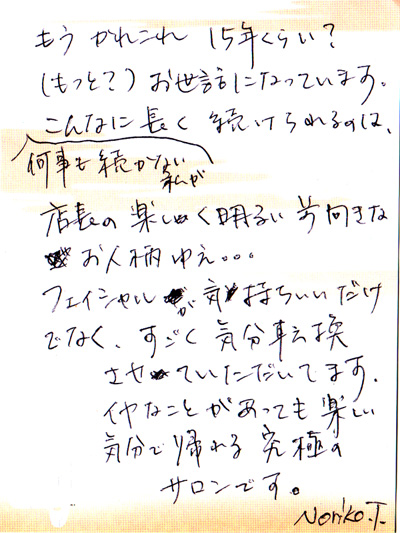 もう かれこれ 15年くらい?
(もっと?) お世話になっています。
こんなに長く 続けられるのは、
何事も続かない
私が
店長の楽しく明るい 前向きな
お人柄ゆえ...
フェイシャルが気持ちいいだけ
でなく、すごく気分転換
させていただいてます。
イヤなことがあっても楽しい
気分で帰れる 究極の
サロンです。
Noriko.T.